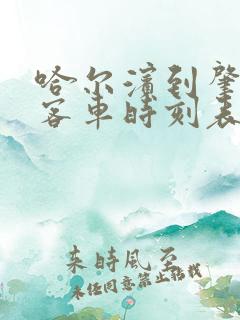 哈尔滨到肇
客车时刻表
来时风至
未经同意禁止搬栽